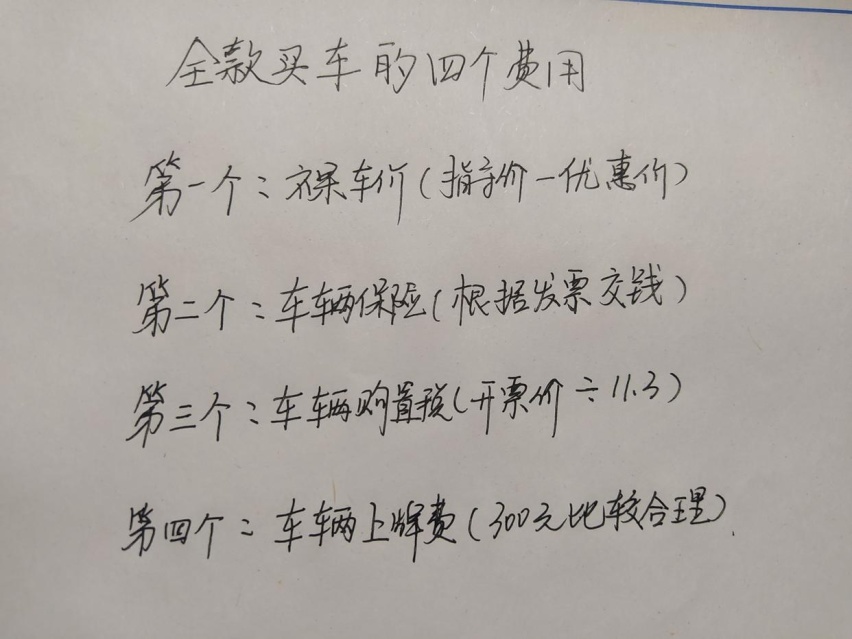 全款买车的四个费用
第一个：裸车价（指导价－优惠价）
第二个：车辆保险（根据发票交钱）
第三个：车辆购置税（开票价÷11.3）
第四个：车辆上牌费（300元比较合理）